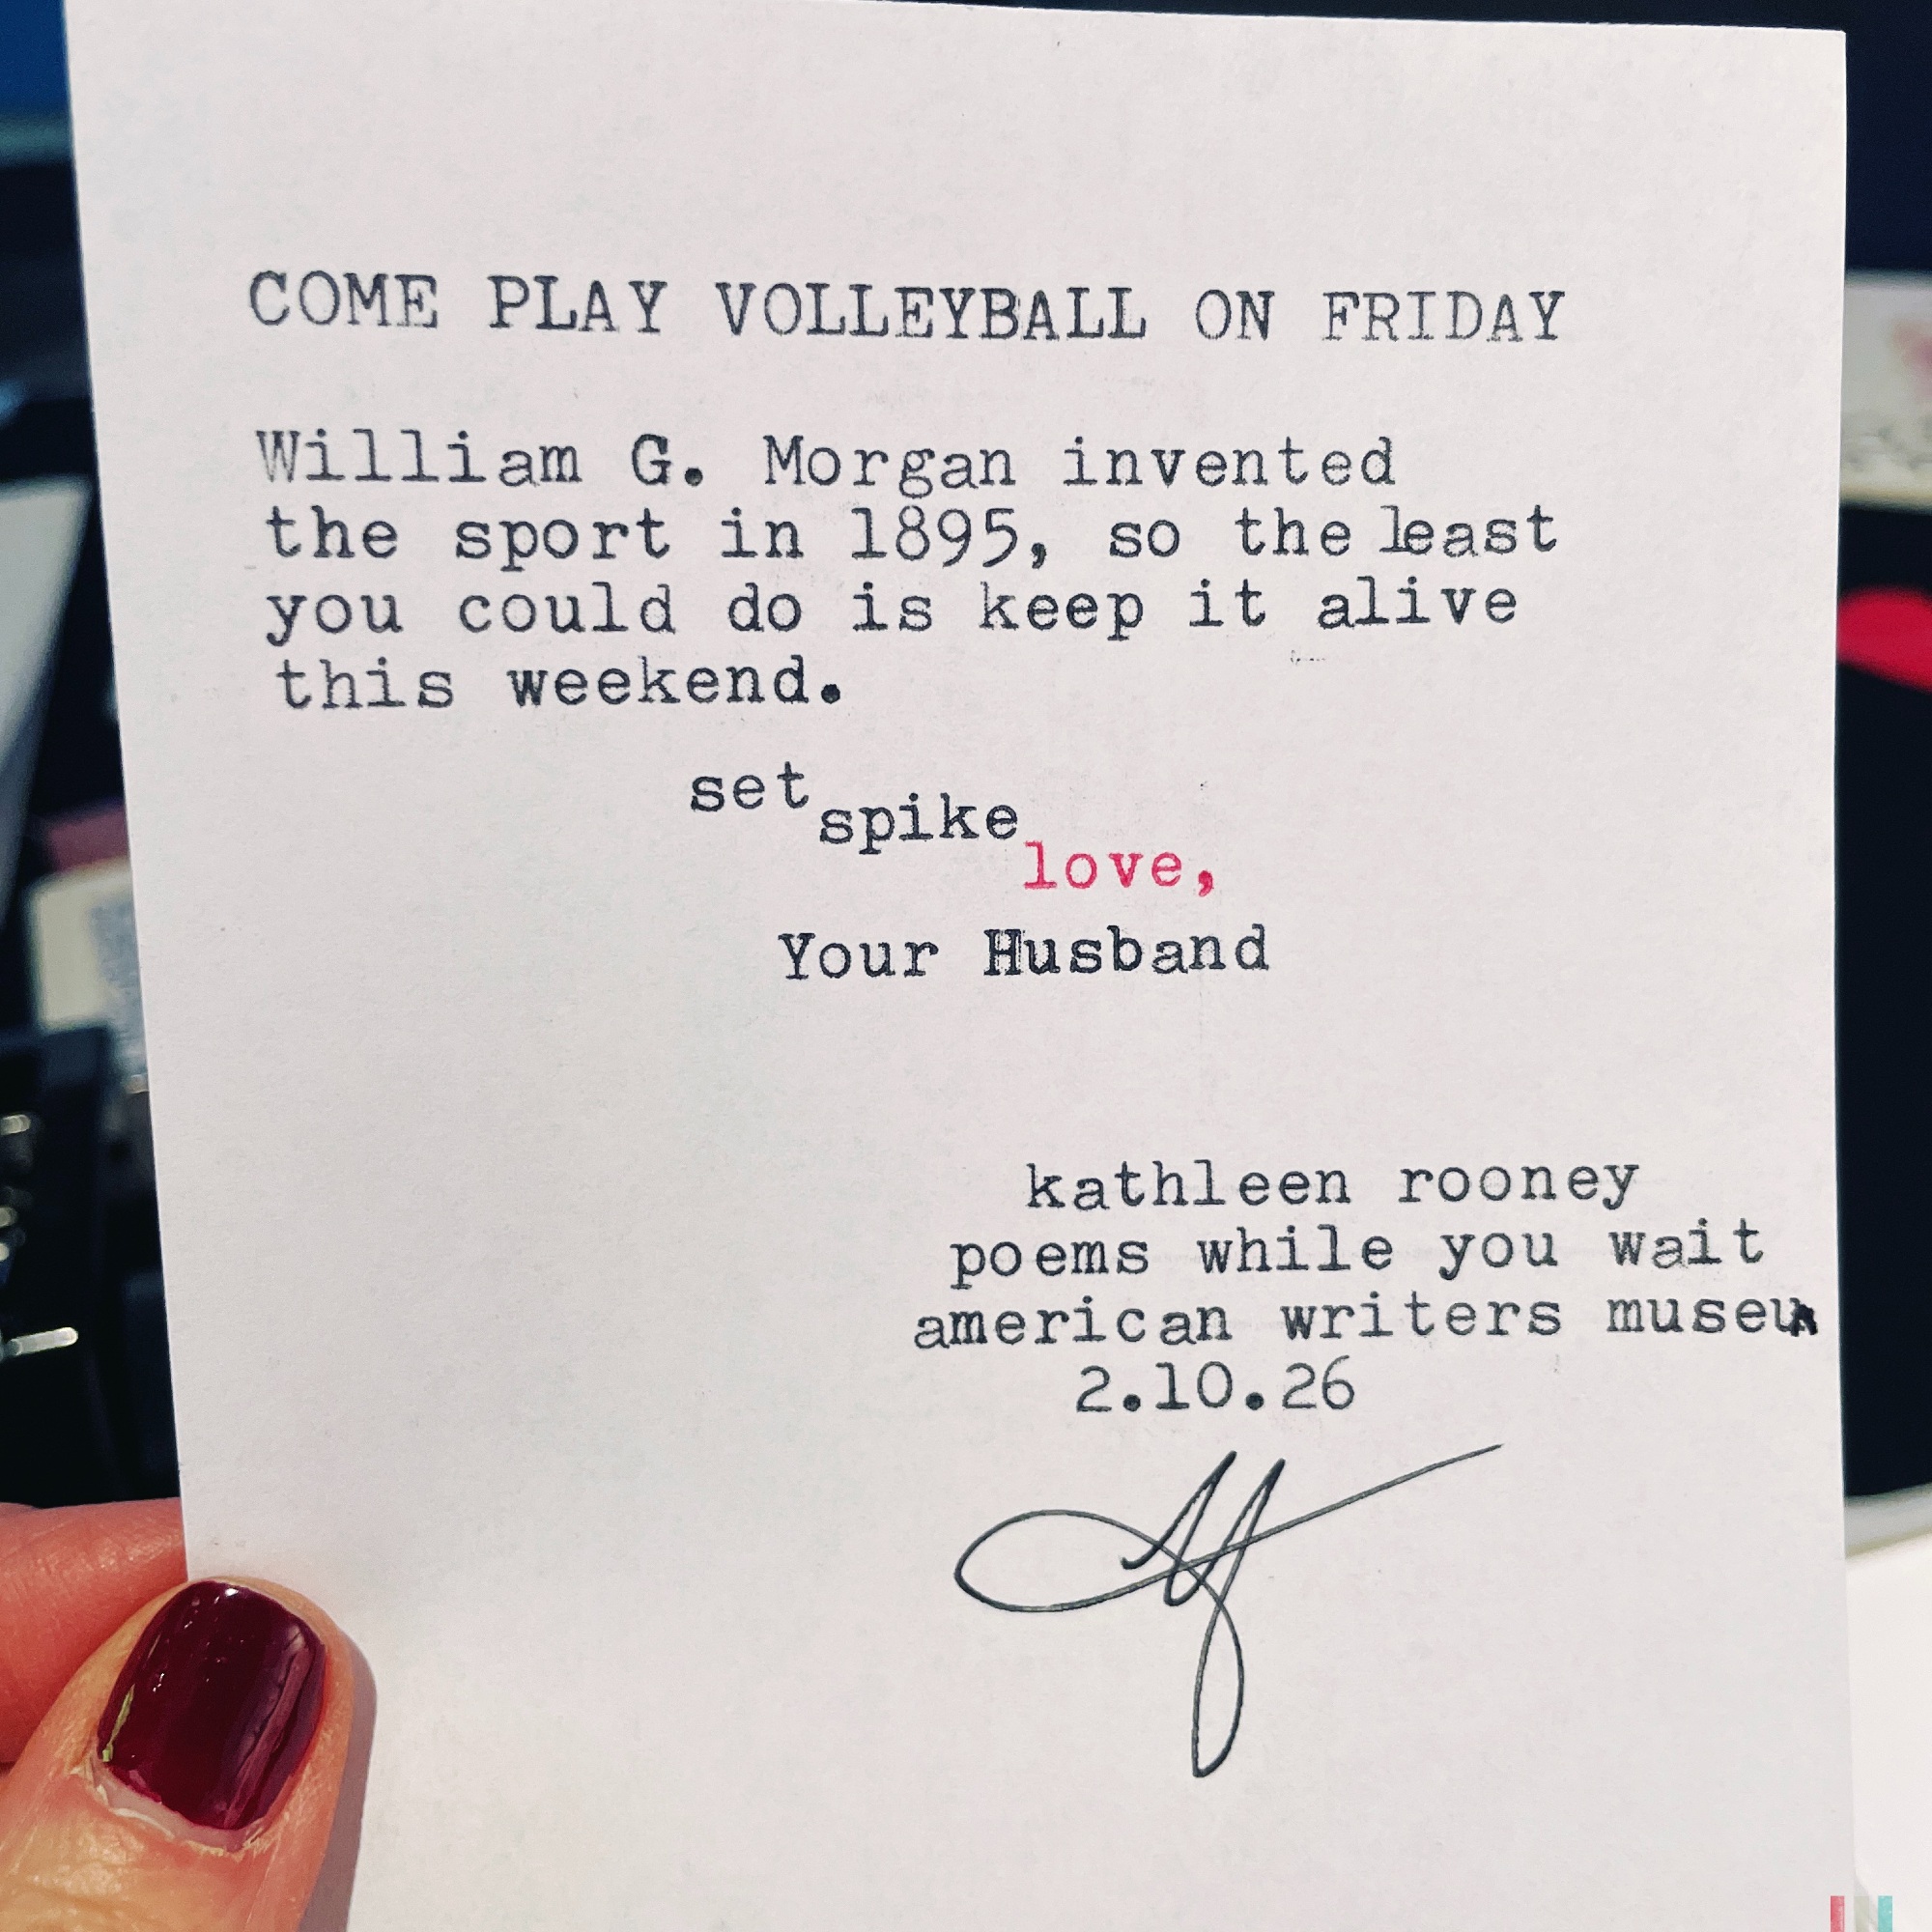 COME PLAY VOLLEYBALL ON FRIDAY
William G. Morgan invented
the sport in 1895, so the least
you could do is keep it alive
this weekend.
set
spike
love,
Your Husband
kathleen rooney
poems while you wait
american writers museum
2.10.26